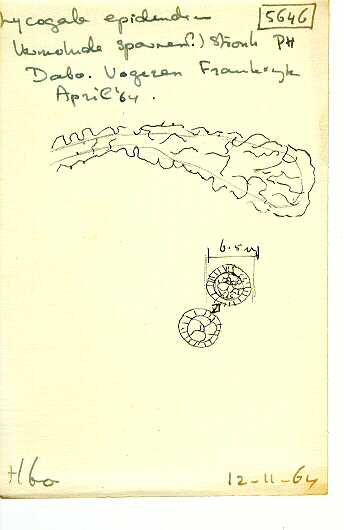 Lycogala epidendrum
5646
Vermolmde sparren(?) stronk PH
Dabo. Vogezen Frankrijk
April '64.
6.5 μ
Hba
12-11-64